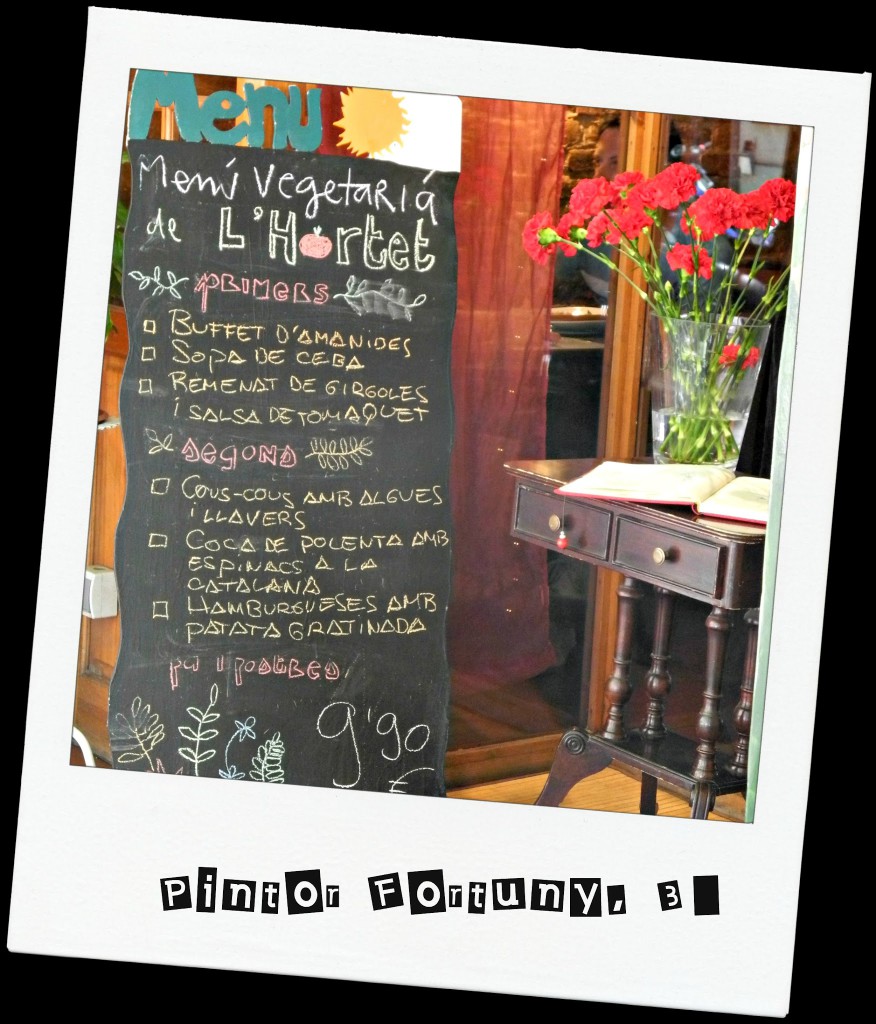 Menu
Menú vegetarià
de L'Hortet
PRIMERS
BUFFET D'AMANIDES
SOPA DE CEBA
REMENAT DE GIRGOLES
I SALSA DE TOMAQUET
SEGONS
COUS-COUS AMB ALGUES
I LLAVERS
COCA DE POLENTA AMB
ESPINACS A LA
CATALANA
HAMBURGUESES AMB
PATATA GRATINADA
pa i postres
9'90
€
Pintor Fortuny, 3